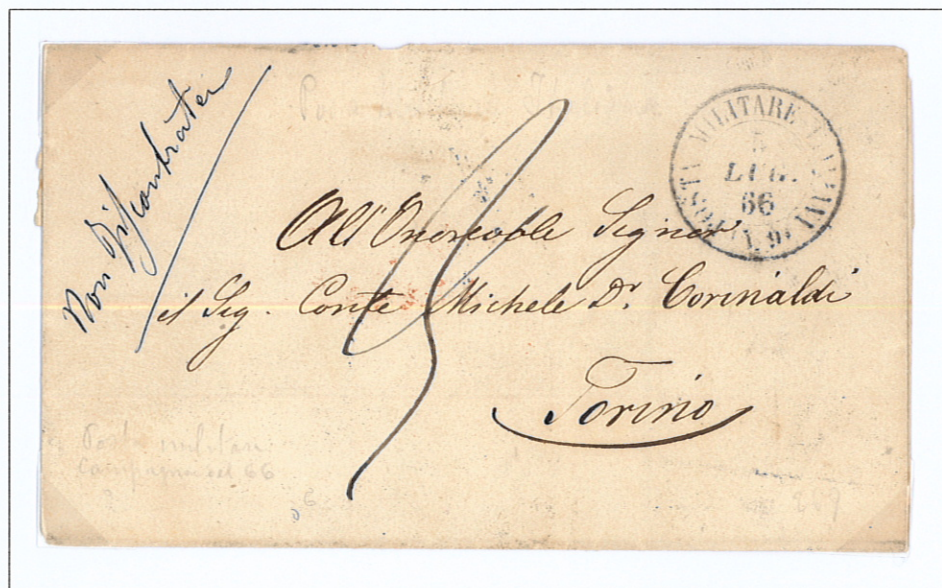 Non
POSTA MILITARE ITALIANA
5
LUG.
66
All'Onorevole Signor
il Sig. Conte Michele Dr. Corinaldi
Torino
Posta militare
Campagna del 66